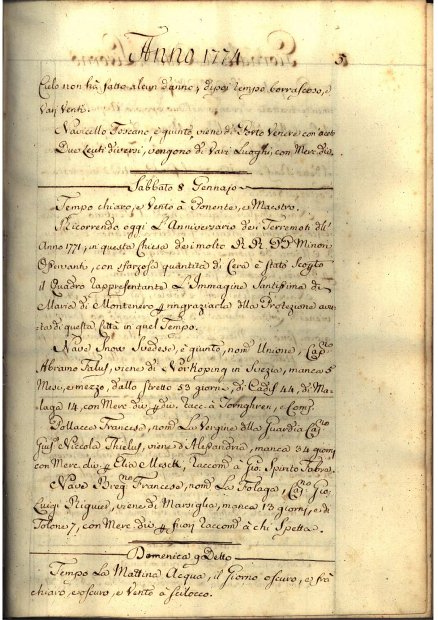 Anno 1774
5
Cielo non hà fatto alcun danno, dipoi tempo borrascoso, e
Varj Venti.
Navicello Toscano è giunto, viene di Porto Venere con
Due Leuti diversi, vengono di Varj Luoghi, con Merc div.
Sabbato 8 Gennajo
Tempo chiaro, e Vento à Ponente, e Maestro.
Ricorrendo oggi L'Anniversario dei Terremoti dell'
Anno 1771, in questa Chiesa dei molto R.R. PP Minori
Osservanti, con sfarzosa quantità di Cera è stato Scoperto
il Quadro rappresentante L'Immagine Santissima di
Maria di Montenero p ringraziarla della Protezione avu-
ta di questa Città in quel Tempo.
Nave Snow Svedese, è giunto, nom Unione, Cap.no
Abramo Falus, viene di Norkoping in Svezia, manca 5
Mesi, e mezzo, dallo Stretto 53 giorni, di Cadis 44, di Ma-
laga 14, con Merc div p div. Racc. à Tornghren, e Comp.
Pollacca Francese, nom La Vergine della Guardia Ca.no
Gius.e Niccola Thielus, viene d'Alesandria, manca 34 giorni
con Merc div p Elia Meseck, Raccom à Gio. Spirito Fabre.
Nave Breg.no Francese, nom La Folaga, Ca.no Gio
Luigi Riquier, viene di Marsiglia, manca 13 giorni, e di
Tolone 7, con Merc div p fuori Raccom à chi Spetta.
Domenica 9 Detto
Tempo La Mattina Acqua, il Giorno oscuro, e frà
chiaro, e oscuro, e Vento à Scilocco.